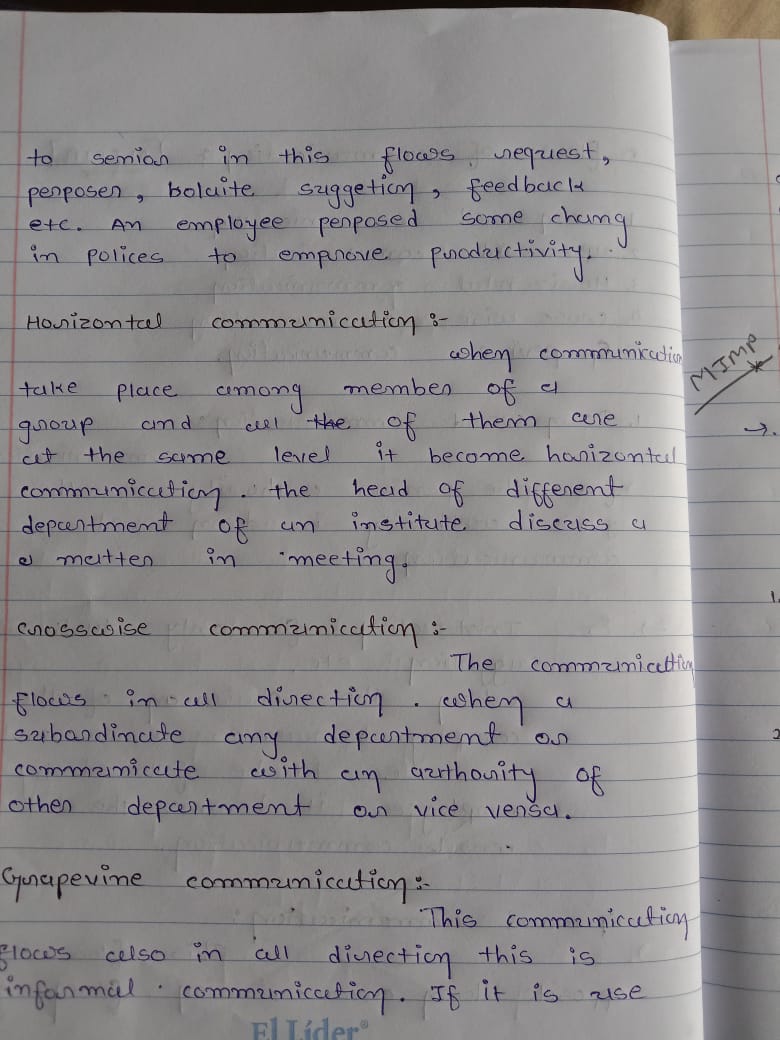 to senior in this flows request,
perposer, bolaite suggetion, feedback
etc. An employee perposed some chang
in polices to emprove productivity.
Horizontal communication :-
when communication
take place among member of a
group and all the of them are
at the same level it become horizontal
communication. the head of different
department of an institute discuss a
a matter in meeting.
crosswise communication :-
The communication
flows in all direction. when a
subordinate any department or
communicate with an authority of
other department or vice versa.
Grapevine communication :-
This communication
flows also in all direction this is
informal communication. If it is use
El Líder®
MIMP
→.
1.
2